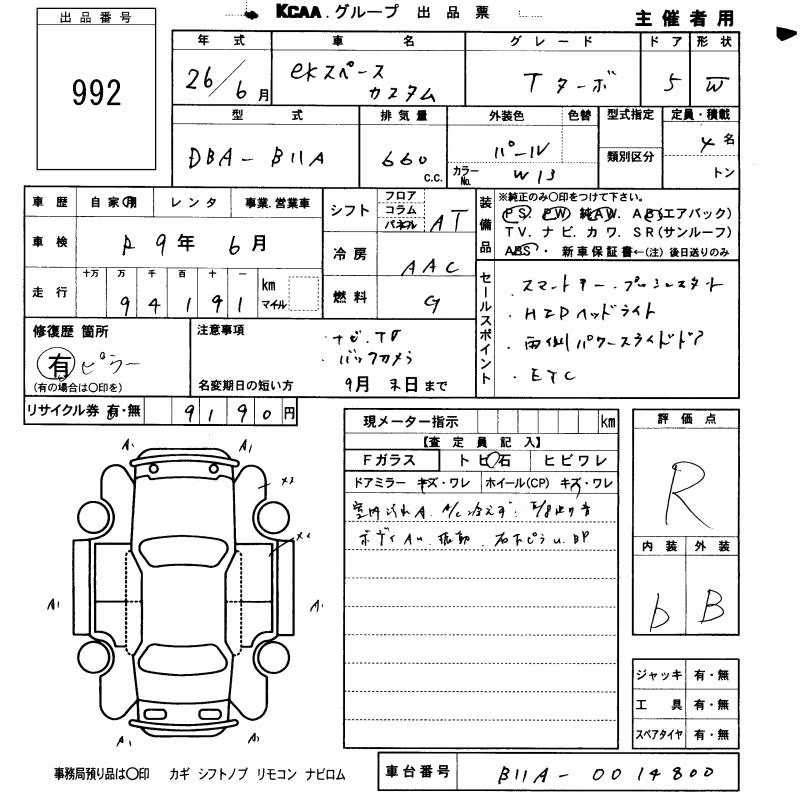 KCAA グループ 出品票
主催者用
出品番号
992
年式 車名 グレード ドア 形状
26/6月 ekスペース カスタム Tターボ 5 W
型式 排気量 外装色 色替 型式指定 定員・積載
類別区分
DBA-B11A 660 c.c. パール 4名
カラーNo. W13 トン
車歴 自家用 レンタ 事業・営業車
車検 R9年 6月
走行 十万 万 千 百 十 一
94191 km マイル
シフト フロア コラム パネル AT
冷房 AAC
燃料 G
装備品
※純正のみ〇印をつけて下さい。
PS. PW 純AW. AB(エアバック)
TV. ナビ. カワ. SR(サンルーフ)
ABS ・新車保証書←(注) 後日送りのみ
セールスポイント
・スマートキー・プッシュスタート
・HIDヘッドライト
・両側パワースライドドア
・ETC
修復歴 箇所
有 ピラー
(有の場合は〇印を)
注意事項
・ナビ.TV
・バックカメラ
名変期日の短い方 9月 末日まで
リサイクル券 有・無 9190円
現メーター指示 km
【査定員記入】
Fガラス トビ石 ヒビワレ
ドアミラー キズ・ワレ ホイール(CP) キズ・ワレ
室内汚れA. A/C冷えず.
ボディAu. 振動. 右下ピラーu. BP
評価点
R
内装 外装
b B
A1 A1
A1 A1
A1 A1
ジャッキ 有・無
工具 有・無
スペアタイヤ 有・無
事務局預り品は〇印 カギ シフトノブ リモコン ナビロム
車台番号 B11A-0014800